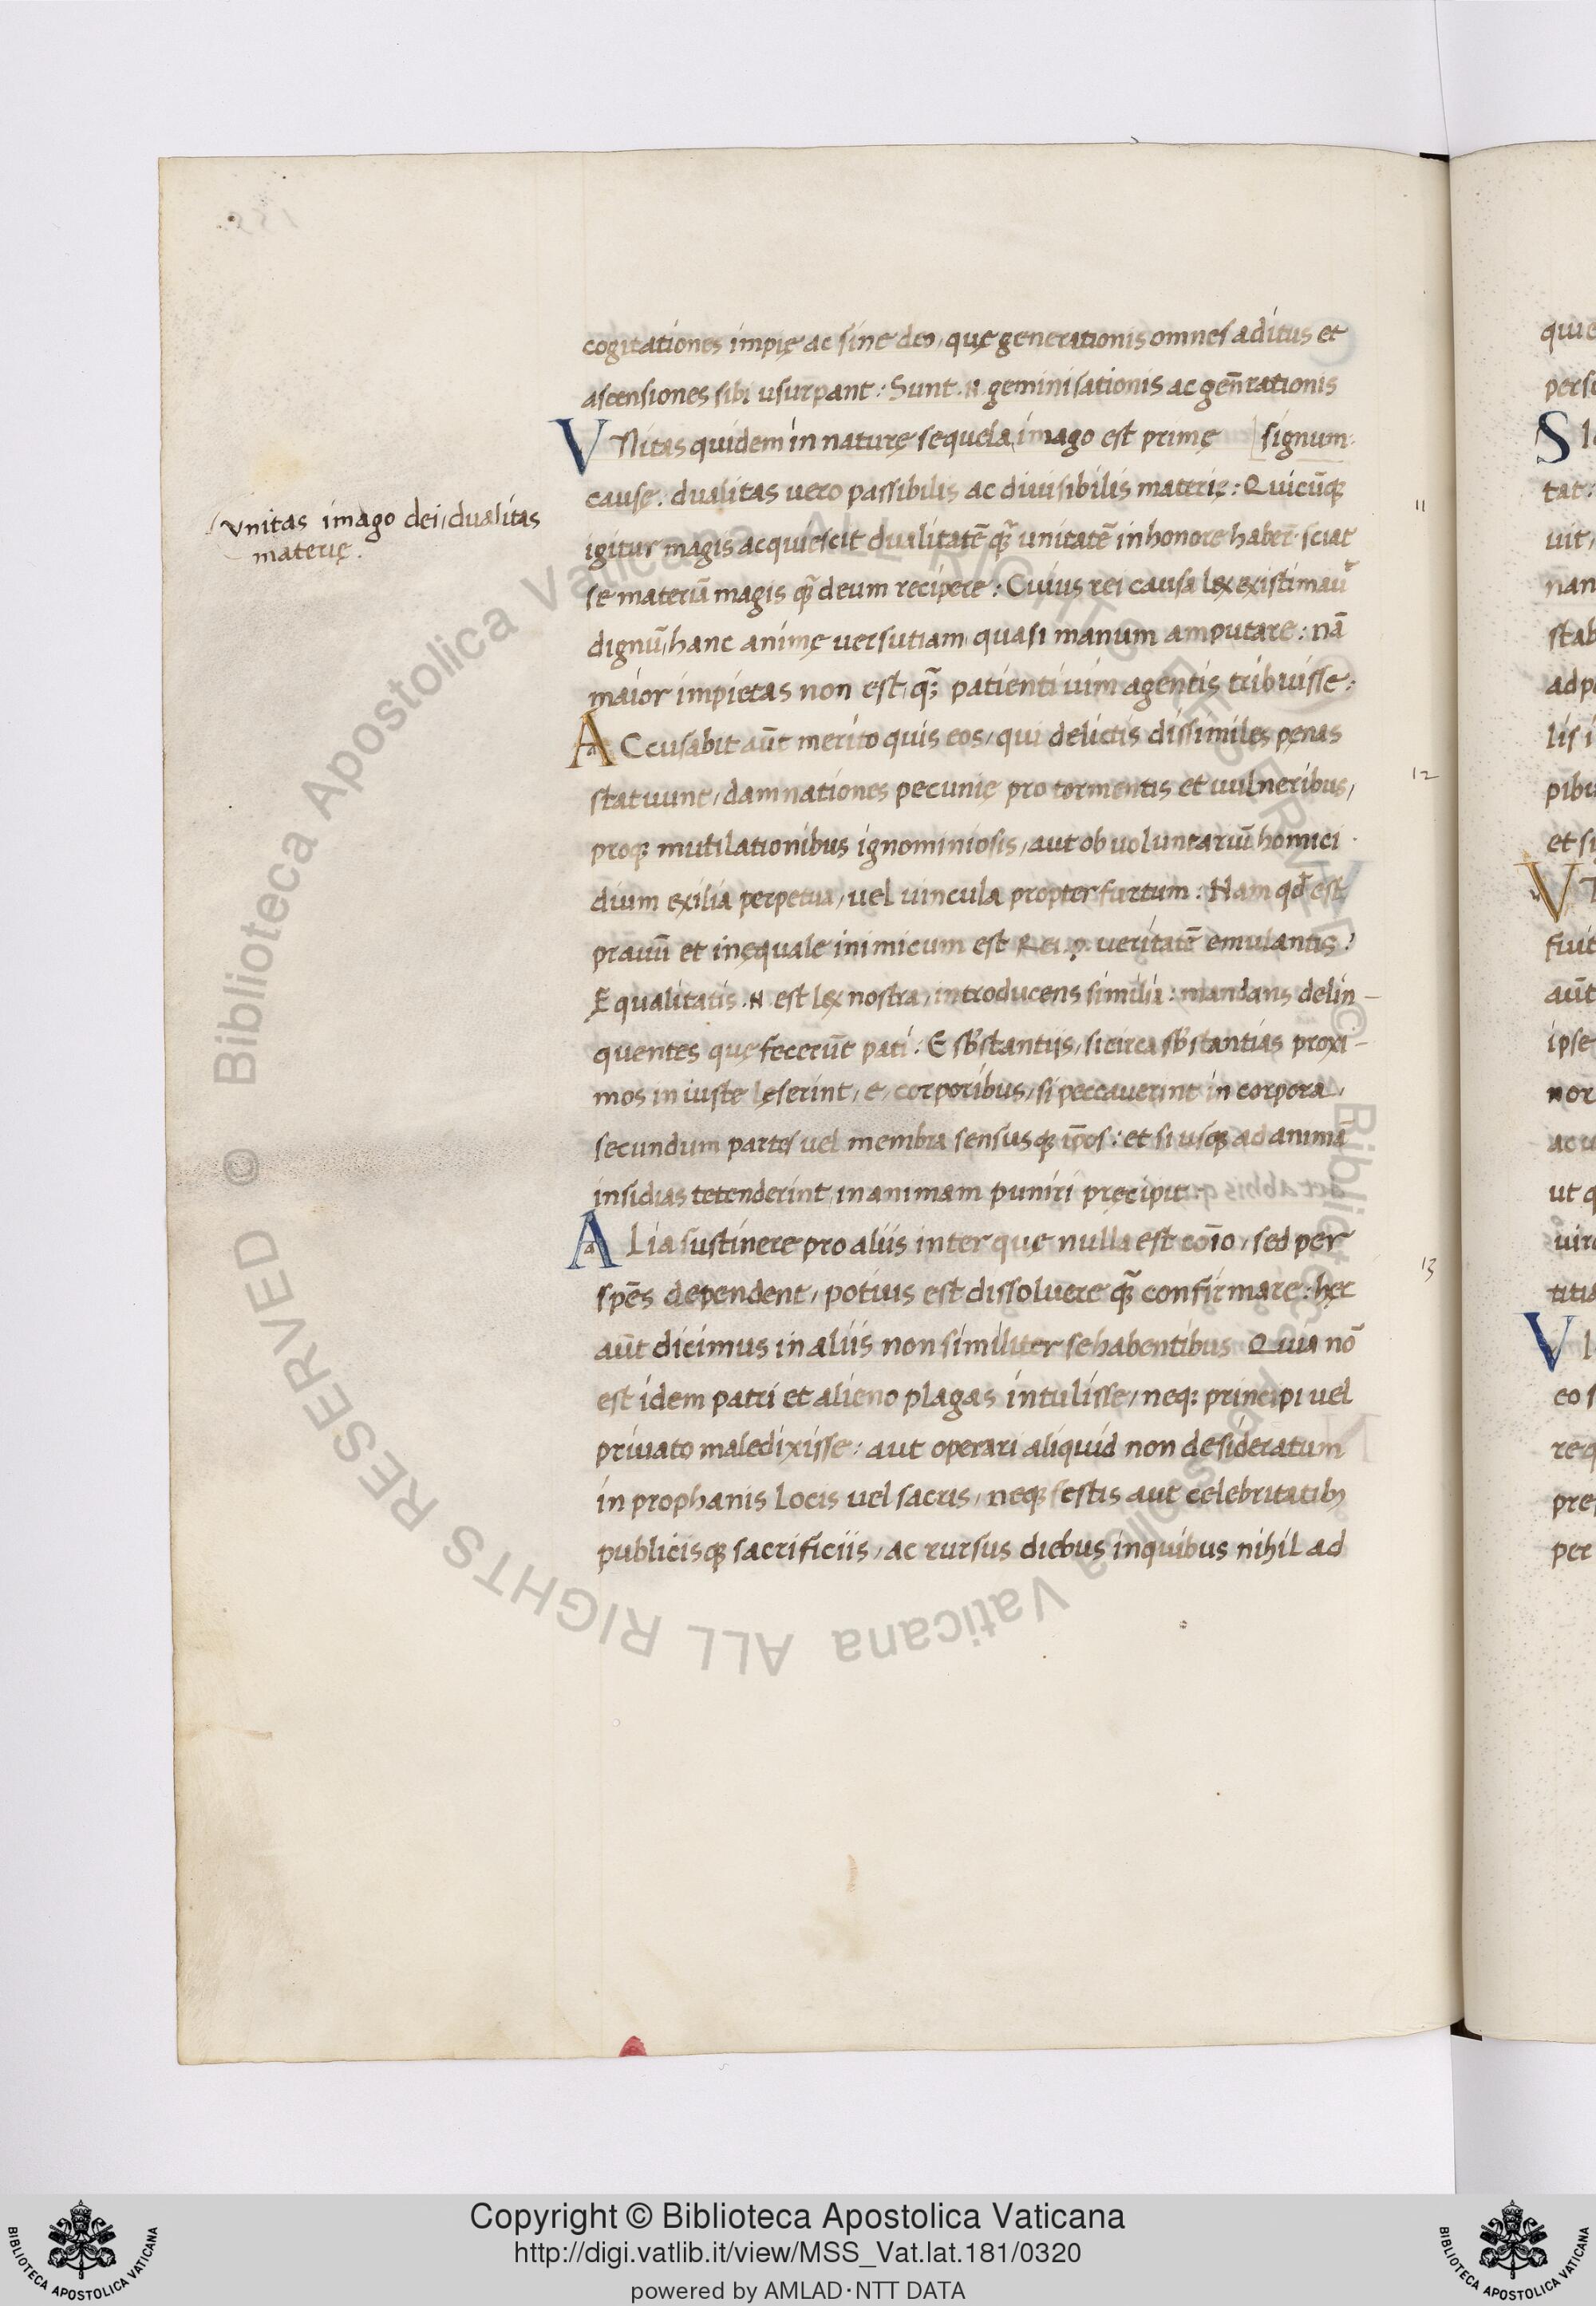 cogitationes impię ac sine deo, quę generationis omnes aditus et
ascensiones sibi usurpant: Sunt .N. gemini sationis ac gen̄rationis
VNitas quidem in naturę sequela imago est primę [signum:
causę: dualitas uero passibilis ac diuisibilis materię: Quicūq;
igitur magis acquiescit dualitatē q̃ unitatē in honore haber̄ sciat
se materiā magis q̃ deum recipere: Cuius rei causa lex existimau᷑
dignū, hanc animę uersutiam quasi manum amputare: nā
maior impietas non est, q̃; patienti uim agentis tribuisse:
ACcusabit aūt merito quis eos, qui delictis dissimiles penas
statuunt, damnationes pecunię pro tormentis et uulneribus,
proq; mutilationibus ignominiosis, aut ob uoluntariū homici
dium exilia perpetua, uel uincula propter furtum: Nam qd̄ est
prauū et inęquale inimicum est Rei .p. ueritatē emulantis:
Ęqualitatis .N. est lex nostra, introducens similia: mandans delin-
quentes quę fecerūt pati: E sb̄stantijs, si circa sb̄stantias proxi-
mos iniuste lęserint, e, corporibus, si peccauerint in corpora,
secundum partes uel membra sensusq; ip̄os: et si usq; ad animā
insidias tetenderint, in animam puniri pręcipit:
ALia sustinere pro aliis inter quę nulla est cōio, sed per
spēs dependent, potius est dissoluere q̃ confirmare: hęc
aūt dicimus in aliis non similiter se habentibus Quia nō
est idem patri et alieno plagas intulisse, neq; principi uel
priuato maledixisse: aut operari aliquid non desideratum
in prophanis locis uel sacris, neq; festis aut celebritatib;
publicisq; sacrificiis, ac rursus diebus in quibus nihil ad
vnitas imago dei, dualitas
materię.
11
12
13
quie
S
tat:
uit,
nan
stab
lis i
pibu
et si
V
fuit
aūt
ipse
nor
ac u
ut q
titia
V
eo s
per
© Biblioteca Apostolica Vaticana ALL RIGHTS RESERVED
© Biblioteca Apostolica Vaticana ALL RIGHTS RESERVED
Copyright © Biblioteca Apostolica Vaticana
http://digi.vatlib.it/view/MSS_Vat.lat.181/0320
powered by AMLAD·NTT DATA
BIBLIOTECA APOSTOLICA VATICANA
BIBLIOTECA APOSTOLICA VATICANA